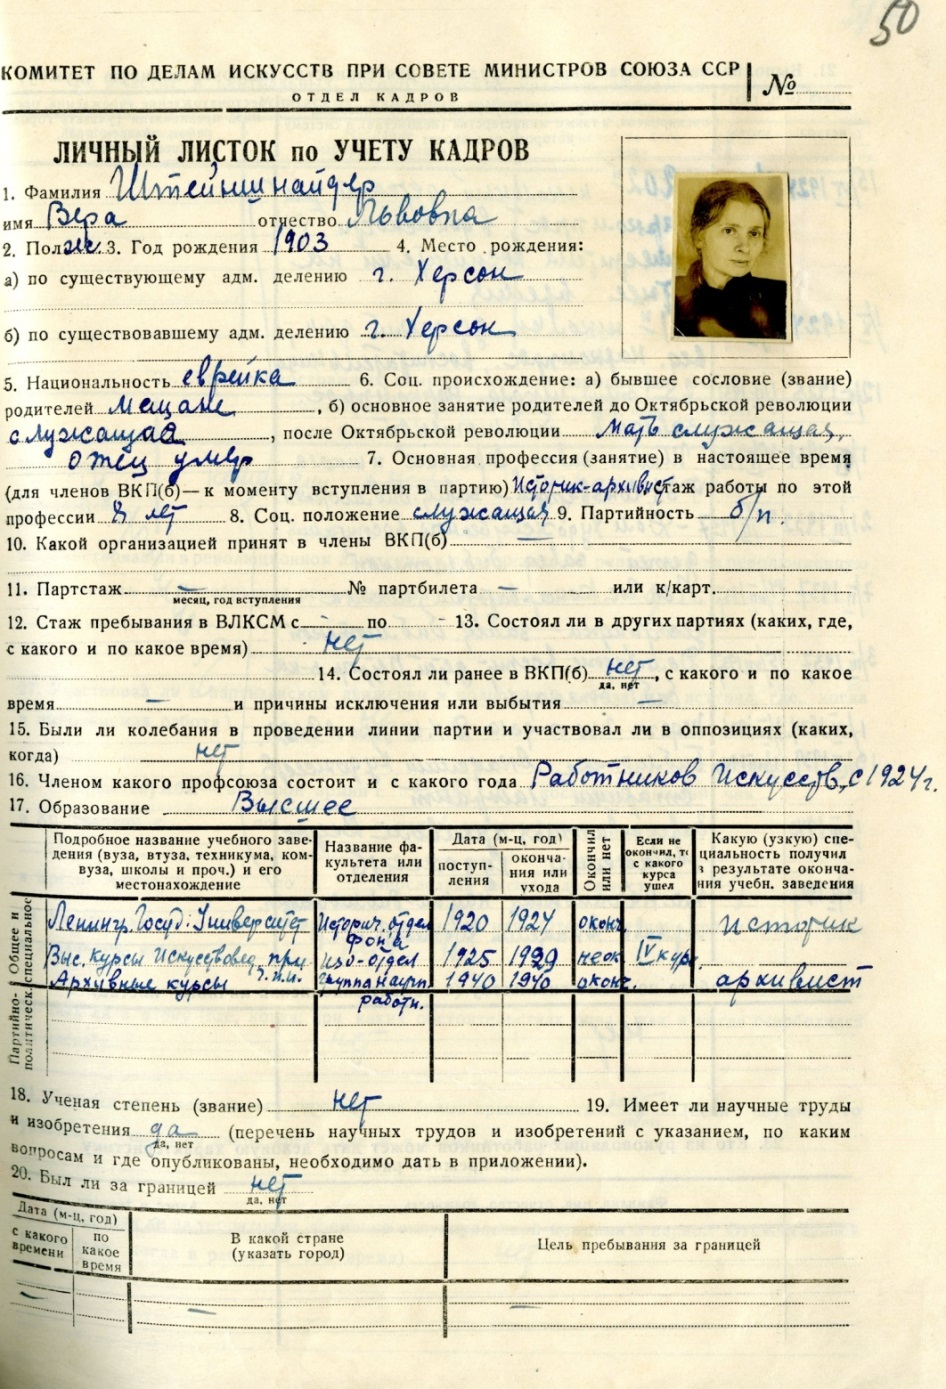 50
КОМИТЕТ ПО ДЕЛАМ ИСКУССТВ ПРИ СОВЕТЕ МИНИСТРОВ СОЮЗА ССР
№
ОТДЕЛ КАДРОВ
ЛИЧНЫЙ ЛИСТОК по УЧЕТУ КАДРОВ
1. Фамилия Штейншнайдер
имя Вера отчество Львовна
2. Пол ж. 3. Год рождения 1903 4. Место рождения:
а) по существующему адм. делению г. Херсон
б) по существовавшему адм. делению г. Херсон
5. Национальность еврейка 6. Соц. происхождение: а) бывшее сословие (звание)
родителей мещане, б) основное занятие родителей до Октябрьской революции
служащая, после Октябрьской революции мать служащая,
отец умер 7. Основная профессия (занятие) в настоящее время
(для членов ВКП(б)—к моменту вступления в партию) Историк-архивист стаж работы по этой
профессии 8 лет 8. Соц. положение служащая 9. Партийность б/п.
10. Какой организацией принят в члены ВКП(б) —
11. Партстаж — № партбилета — или к/карт.
месяц, год вступления
12. Стаж пребывания в ВЛКСМ с - по - 13. Состоял ли в других партиях (каких, где,
с какого и по какое время) нет
14. Состоял ли ранее в ВКП(б) нет, с какого и по какое
да, нет
время — и причины исключения или выбытия —
15. Были ли колебания в проведении линии партии и участвовал ли в оппозициях (каких,
когда) нет
16. Членом какого профсоюза состоит и с какого года Работников Искусств, с 1924 г.
17. Образование Высшее
Подробное название учебного заведения (вуза, втуза, техникума, комвуза, школы и проч.) и его местонахождение
Название факультета или отделения
Дата (м-ц, год)
поступления
окончания или ухода
Окончил или нет
Если не окончил, то с какого курса ушел
Какую (узкую) специальность получил в результате окончания учебн. заведения
Общее и специальное
Ленингр. Госуд. Университет Историч. отдел фона 1920 1924 оконч. историк
Выс. курсы Искусствовед. при Изо-отдел 1925 1929 неок IV курс
Архивные курсы группа научн. работн. 1940 1940 оконч. архивист
Партийно-политическ.
18. Ученая степень (звание) нет 19. Имеет ли научные труды
и изобретения да (перечень научных трудов и изобретений с указанием, по каким
да, нет
вопросам и где опубликованы, необходимо дать в приложении).
20. Был ли за границей нет
да, нет
Дата (м-ц, год)
с какого времени
по какое время
В какой стране (указать город)
Цель пребывания за границей
— — —